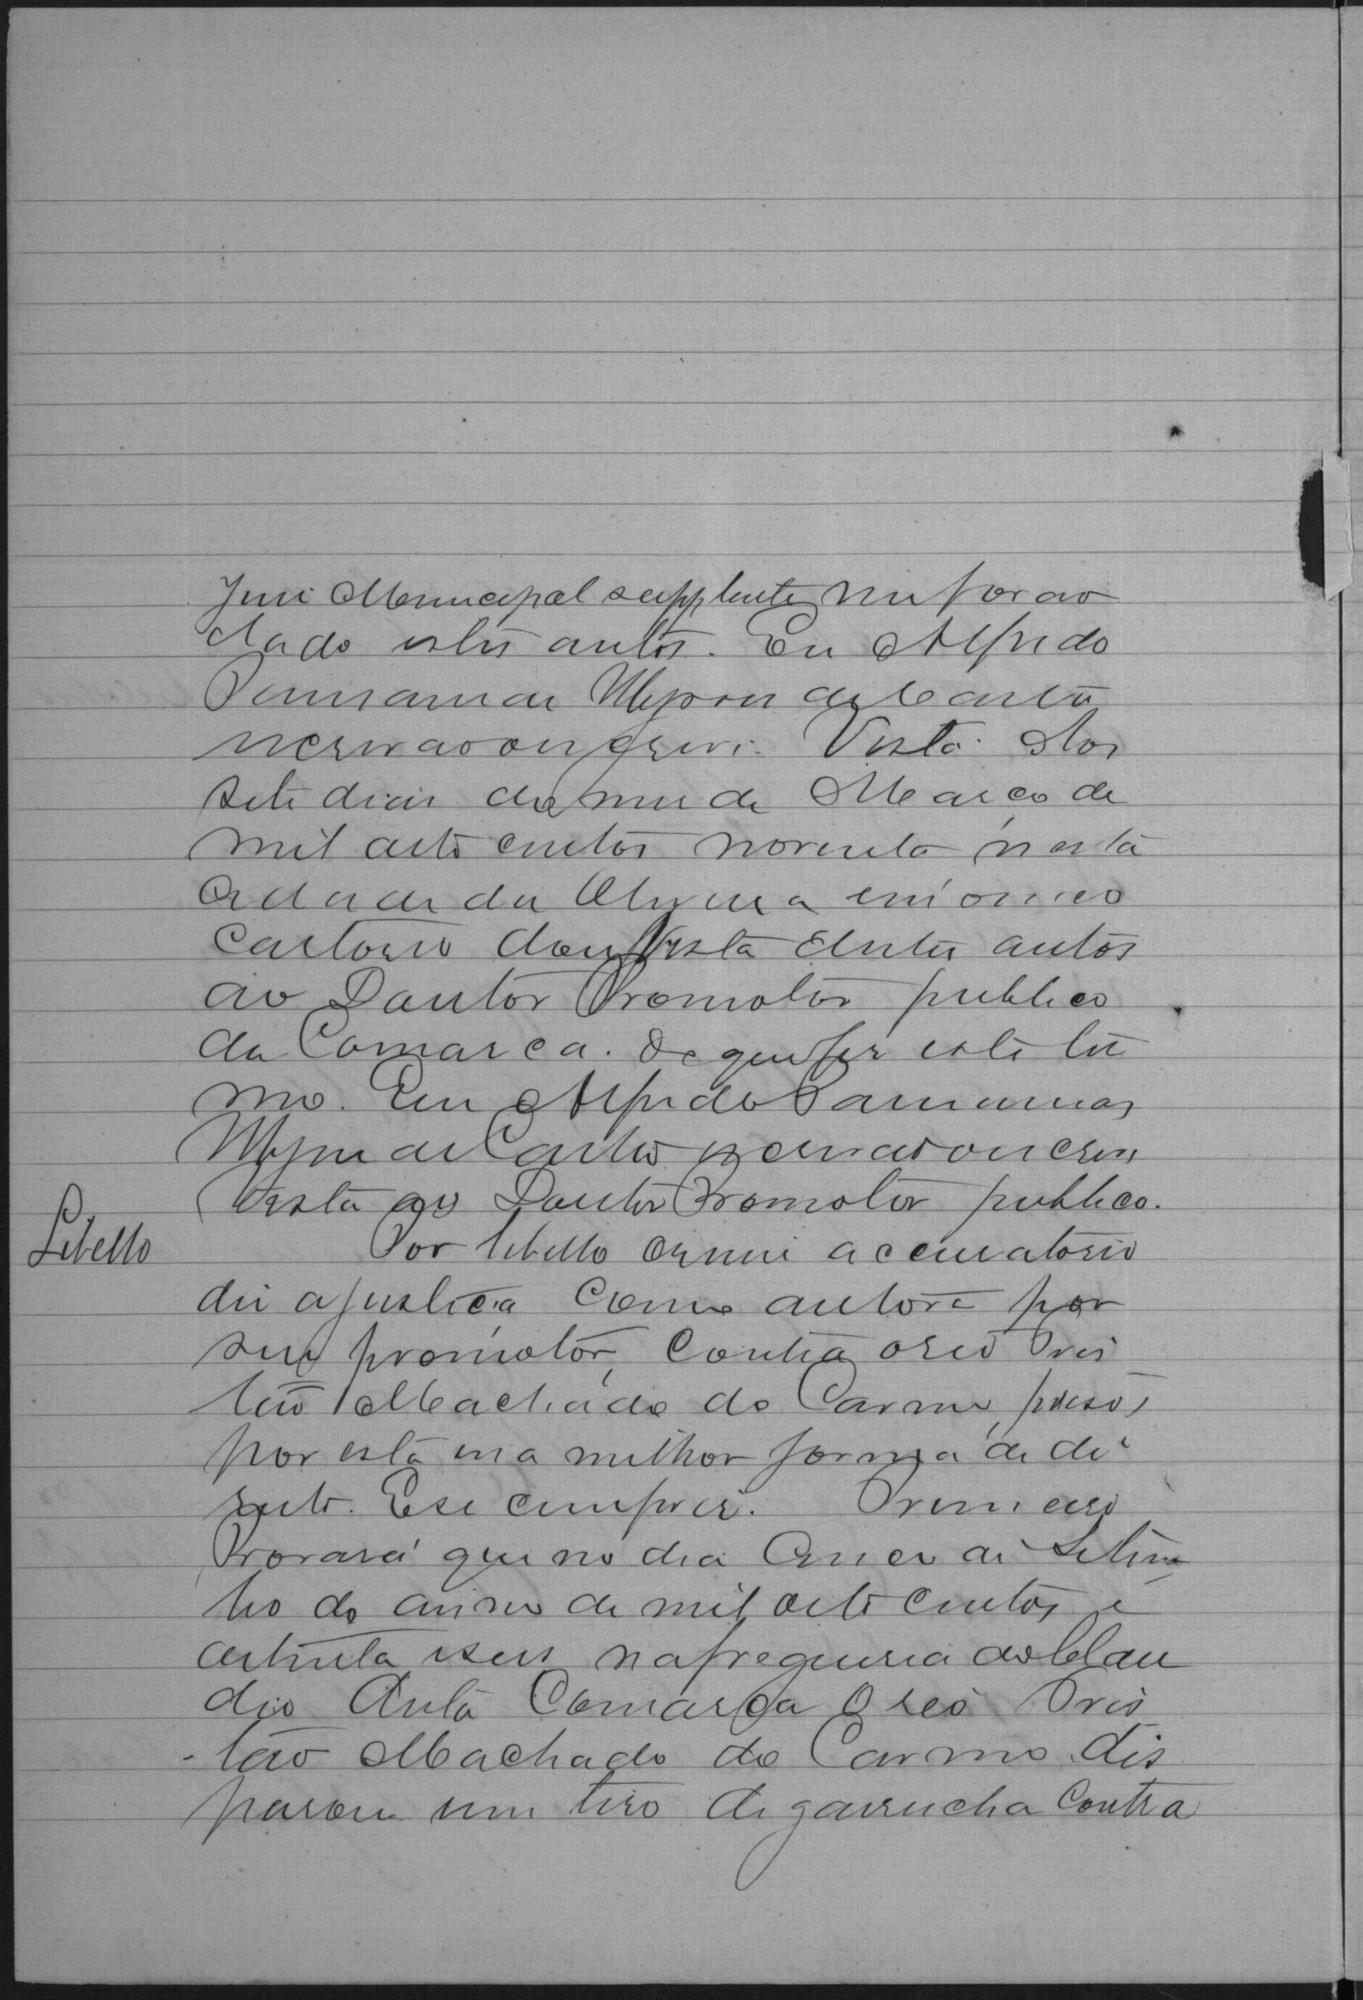 Juiz Municipal supplente me foraõ
dado estes autos. Eu Alfredo
de Castro
escrivaõ que escrevi. Vista. Aos
sete dias do mez de Março de
mil oito centos noventa nesta
cidade da em o meo
Cartorio dou Vista destes autos
ao Doutor Promotor publico
da Comarca. De que fiz este ter
mo. Eu Alfredo
de Castro escrivaõ que escrevi
Vista ao Doutor Promotor publico.
Libello
Por libello crime accusatorio
diz a justiça como autora por
seu promotor, contra o reo Tris
taõ Machado do Carmo, preso,
por esta e na melhor forma de di
reito. E se cumprir. Primeiro
Provará que no dia cinco de Setem
bro do anno de mil oito centos e
oitenta e seis na freguesia do Clau
dio desta Comarca o reo Tris
tão Machado do Carmo dis
parou um tiro de garrucha contra